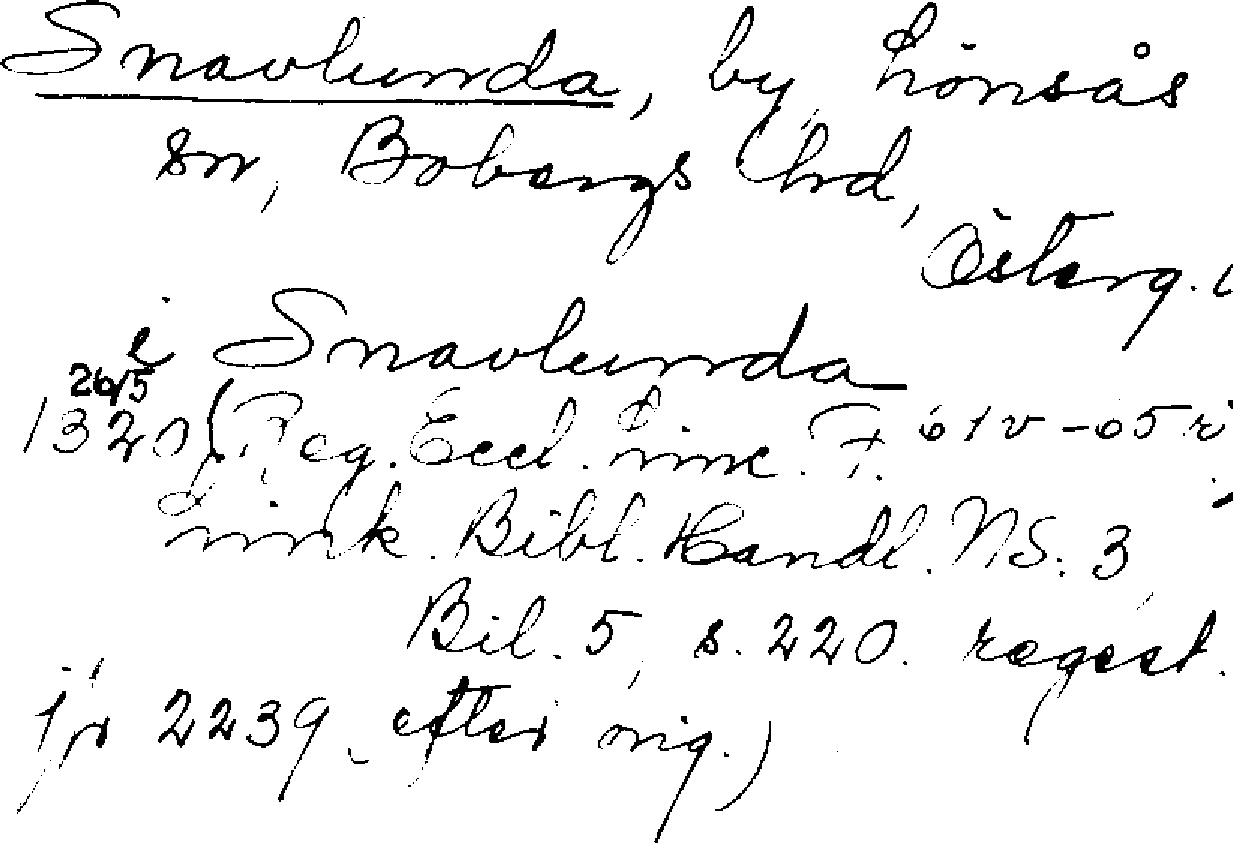 Snavlunda, by, Lönsås
sn, Bobergs hrd,
Österg. l
i Snavlunda
26/5
1320 (Reg. Eccl. Linc. F. 61v-65r
Link. Bibl. Handl. NS. 3,
Bil. 5, s. 220. regest.
jfr 2239, efter orig.)